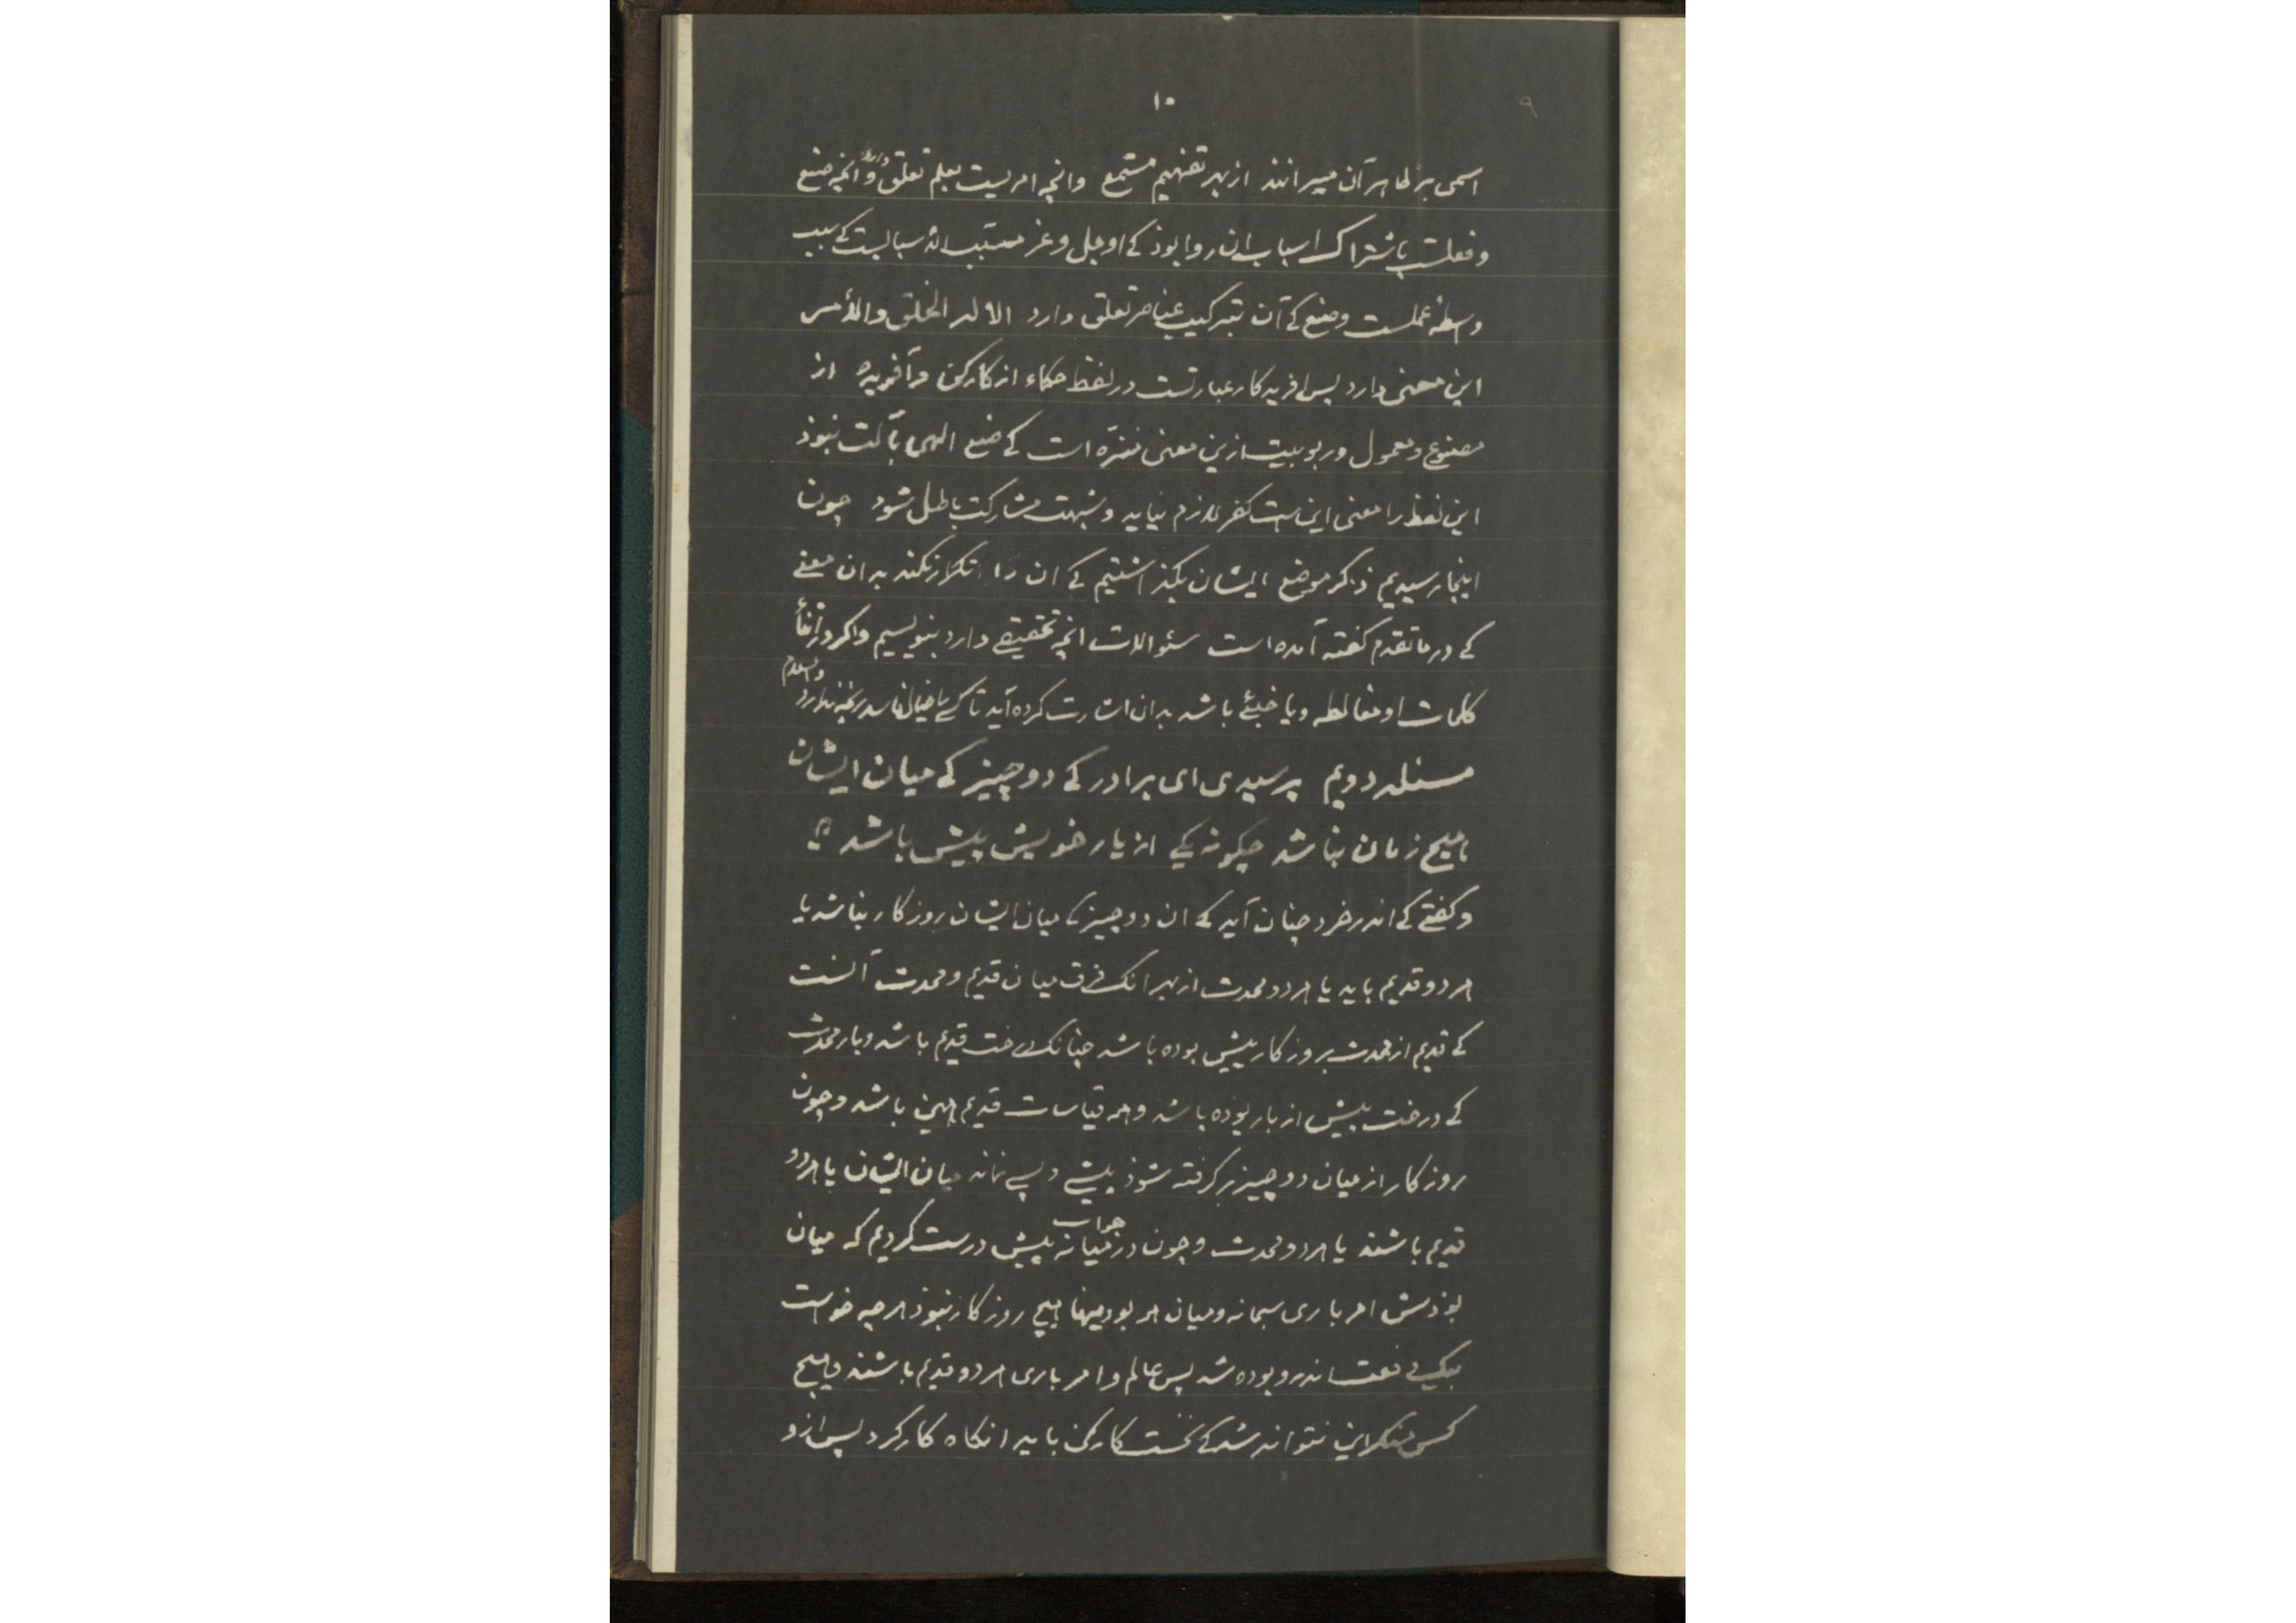 ۱۰
۹
اسمی بر ظاهر آن میرانند از بهر تفهیم مستمع وانچه امریست بعلم تعلق دارد وانچه صنع
وفعلست باشتراک اسباب ان روا بوذ کے او جل وعز مسبب الاسبابست کے سبب
واسطهٔ عملست وصنع کے آن بترکیب عناصر تعلق دارد الا له الخلق والأمر
این معنی دارد پس افریدکار عبارتست در لفظ حکماء از کارکن وآفریده از
مصنوع ومعمول وربوبیت ازین معنی منزّه است کے صنع الهی بآلت نبوذ
این لفظ را معنی این است کفر لازم نیاید وشبهت مشارکت باطل شود چون
اینجا رسیدیم ذکر موضع ایشان بکذاشتیم کے ان را تکرار نکند بدان معنے
کے در ما تقدم کفته آمده است سئوالات انچه تحقیقے دارد بنویسیم واکر در اثنأ
کلمات او مغالطه ویا خبئے باشد بدان اشارت کرده آید تا کسے با خیال فاسد رنجه ندارد والسلام
مسئله دویم پرسیدی ای برادر کے دو چیز کے میان ایشان
هیچ زمان نباشد چکونه یکے از یار خویش پیش باشد
وکفتے کے اندر خرد چنان آید کے ان دو چیز کے میان ایشان روزکار نباشد یا
هر دو قدیم باید یا هر دو محدث از بهر انک فرق میان قدیم ومحدث آنست
کے قدیم از محدث بروزکار پیش بوده باشد چنانک درخت قدیم باشد وبار محدث
کے درخت پیش از بار بوذه باشذ وهمه قیاسات قدیم همین باشد وچون
روزکار از میان دو چیز برکرفته شوذ پیشے و پسے نماند میان ایشان یا هر دو
قدیم باشند یا هر دو محدث وچون در میانه پیش درست کردیم که میان
جواب
بوذش امر باری سبحانه ومیان هر بودنیها هیچ روزکار نبوذ هرچه خواست
بیکے دفعت اندرو بوده شد پس عالم وامر باری هر دو قدیم باشند وهیچ
کس منکر این نتواند شد کے نخست کارکن باید انکاه کارکرد پس ازو